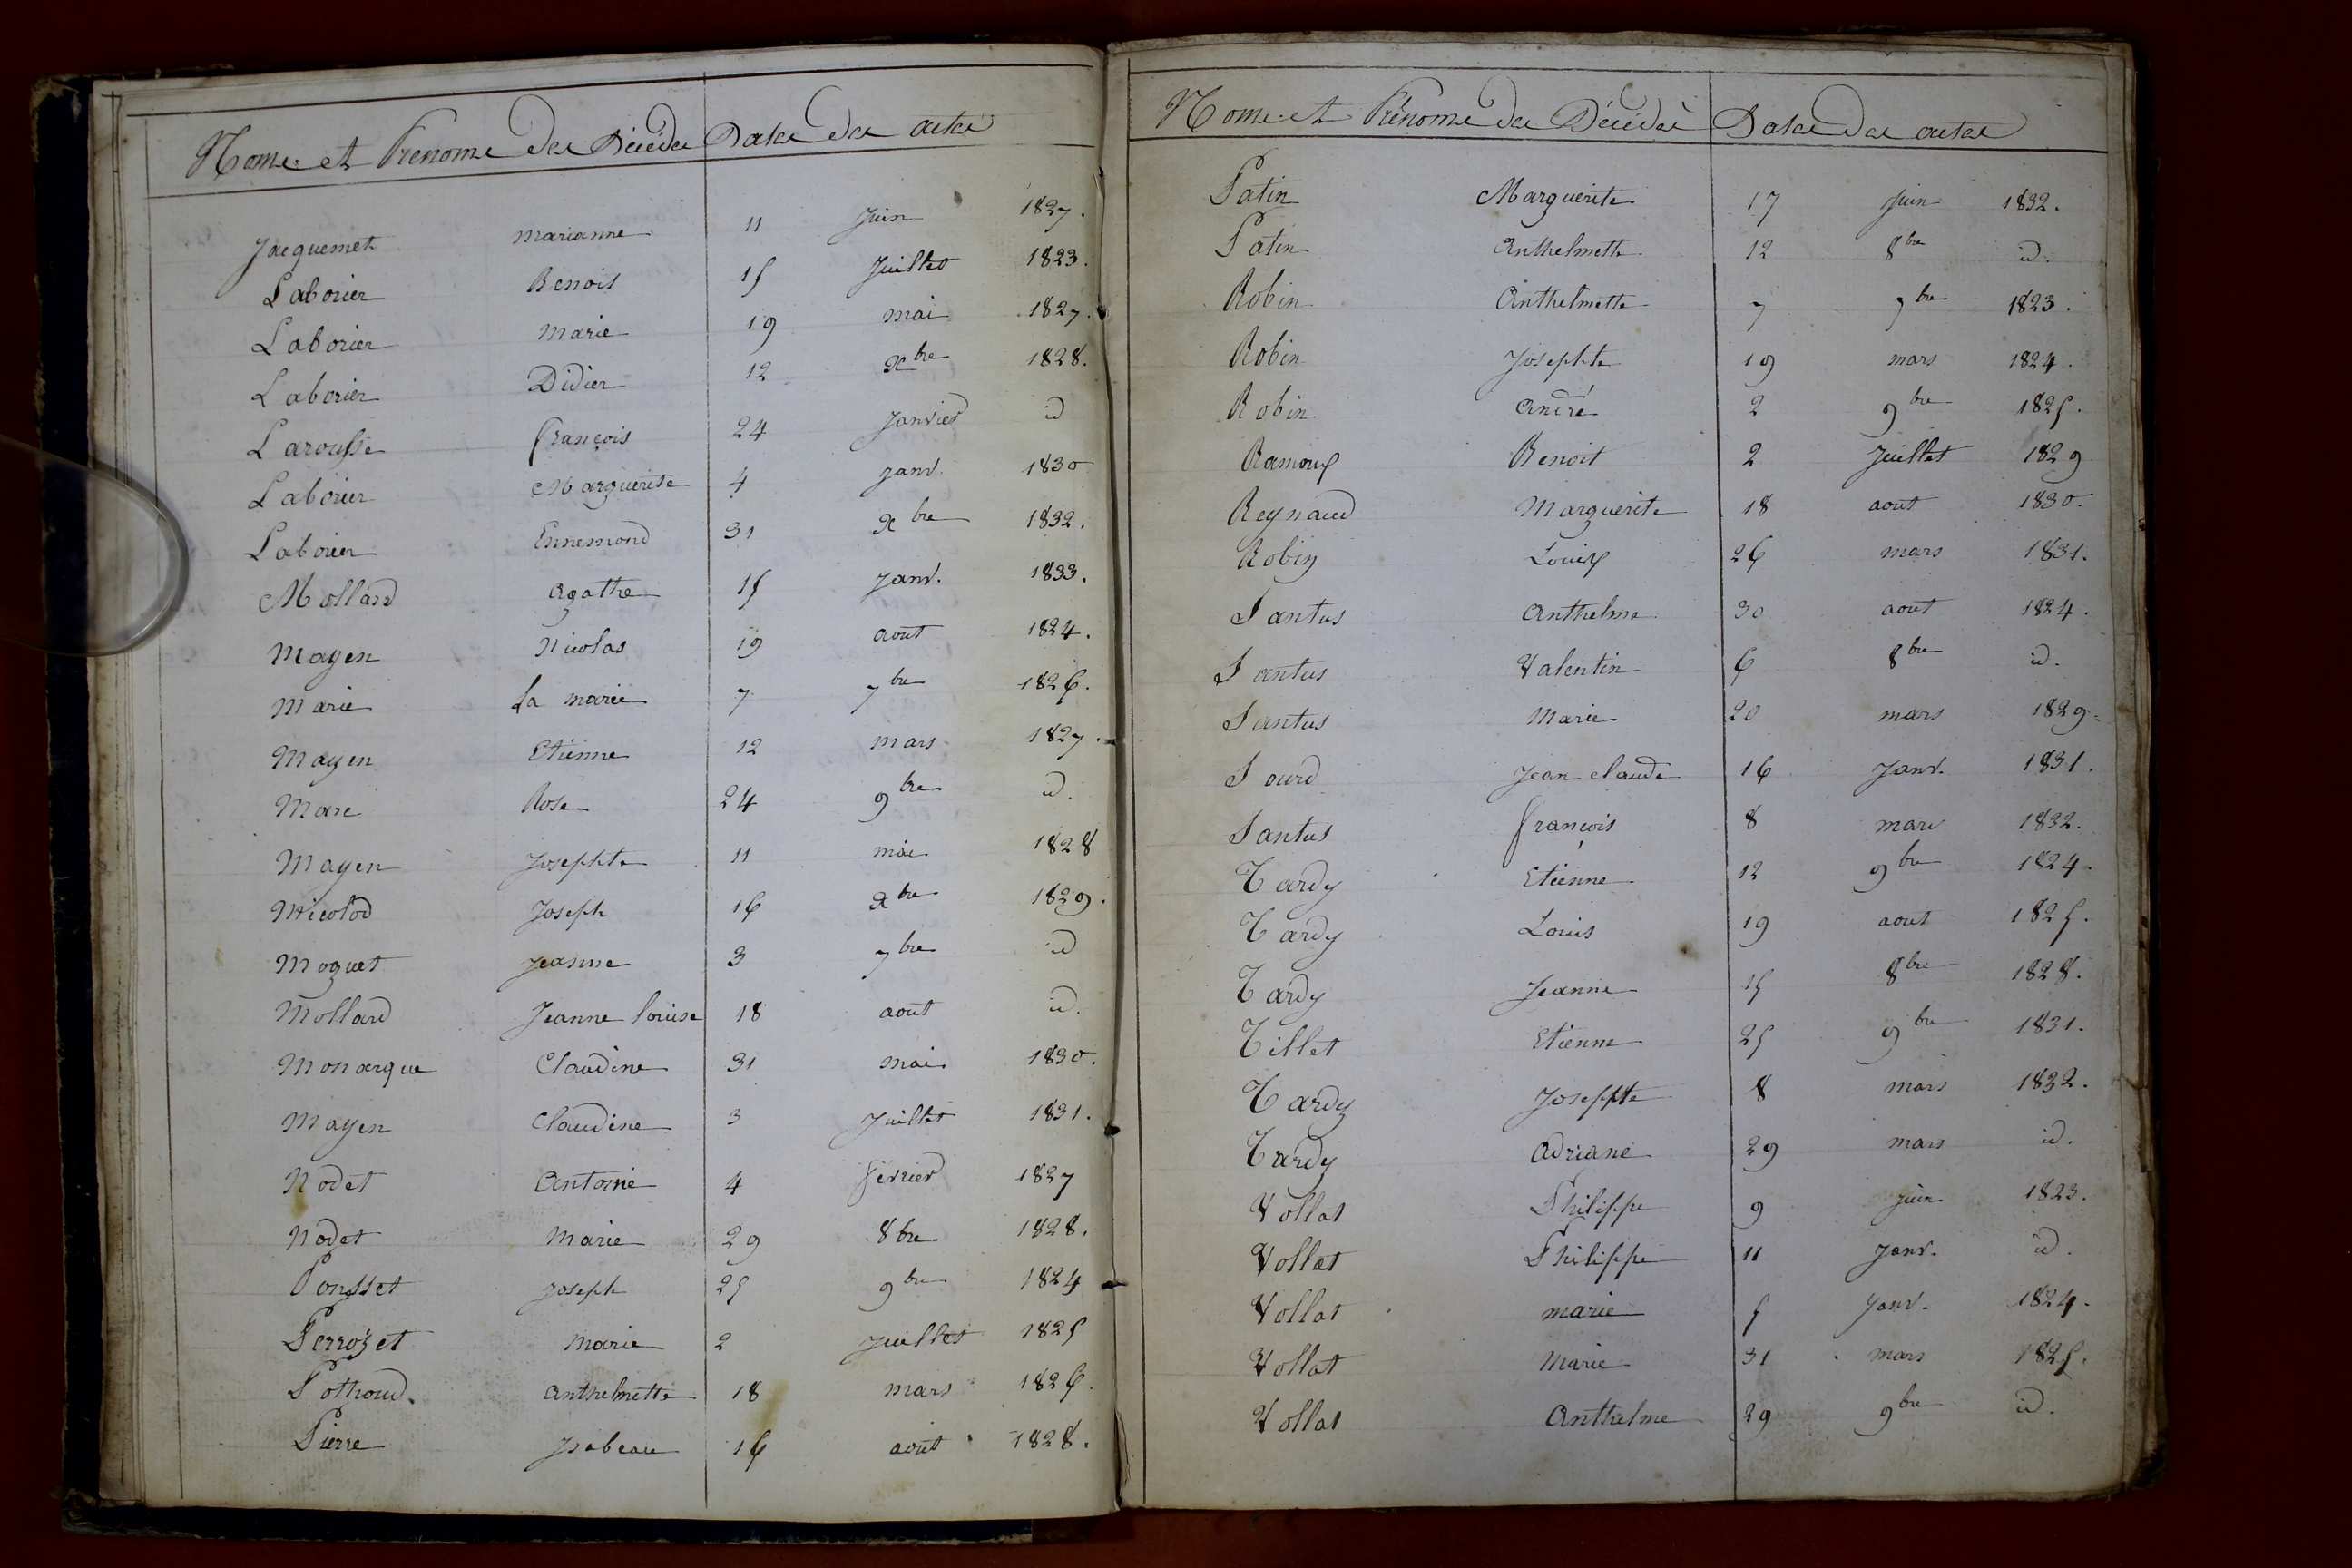 Noms et Prénoms des Décédés Dates des actes
Jacquemet marianne 11 Juin 1827.
Laborier Benoit 15 Juillet 1823.
Laborier Marie 19 mai 1827.
Laborier Didier 12 xbre 1828.
Larousse françois 24 Janvier id
Laborier Marguerite 4 janv. 1830
Laborier Ennemond 31 xbre 1832.
Mollard agathe 15 Janv. 1833.
Mayen Nicolas 19 août 1824.
Marie la marie 7 7bre 1826.
Mayen Etienne 12 mars 1827.
Marc Rose 24 9bre id.
Mayen Josephte 11 mai 1828
Micolod Joseph 16 xbre 1829.
Moguet Jeanne 3 7bre id
Mollard Jeanne louise 18 août id.
Monarque Claudine 31 mai 1830.
Mayen Claudine 3 Juillet 1831.
Nodet Antoine 4 février 1827
Nodet Marie 29 8bre 1828.
Ponsset joseph 25 9bre 1824
Perrozet Marie 2 Juillet 1825
Pothoud. anthelmette 18 mars 1826.
Pierre Isabeau 16 août 1828.
Noms et Prénoms des Décédés Dates des actes
Patin Marguerite 17 Juin 1832.
Patin Anthelmette 12 8bre id.
Robin Anthelmette 7 7bre 1823.
Robin Josephte 19 mars 1824.
Robin André 2 9bre 1825.
Benoit 2 Juillet 1829
Reynaud Marguerite 18 aout 1830.
Robin Louis 26 mars 1831.
Santus Anthelme 30 aout 1824.
Santus Valentin 6 8bre id.
Santus Marie 20 mars 1829.
Sourd Jean claude 16 Janv. 1831.
Santus françois 8 mars 1832.
Tardy Etienne 12 9bre 1824.
Tardy Louis 19 aout 1825.
Tardy Jeanne 15 8bre 1828.
Tillet Etienne 25 9bre 1831.
Tardy Josephte 8 mars 1832.
Tardy Adriane 29 mars id.
Vollat Philippe 9 juin 1823.
Vollat Philippe 11 Janv. id.
Vollat marie 5 Janv. 1824.
Vollat Marie 31 mars 1825.
Vollat Anthelme 29 9bre id.